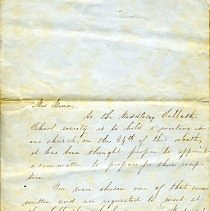 Miss Mina,
As the Middlebury Sabbath
School society is to hold a meeting in
our church, on the 29th of this month,
it has been thought proper to appoint
a committee to prepare for their
You were chosen one of that com
mittee and are requested to meet at